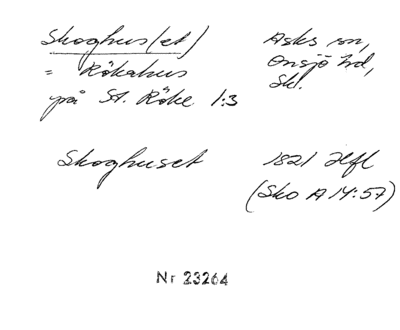 Skoghus(et) Asks sn,
= Rökahus Onsjö hd,
på St. Röke 1:3 Sk.
Skoghuset 1821 Hfl
(Sko A 14:57)
Nr 23264